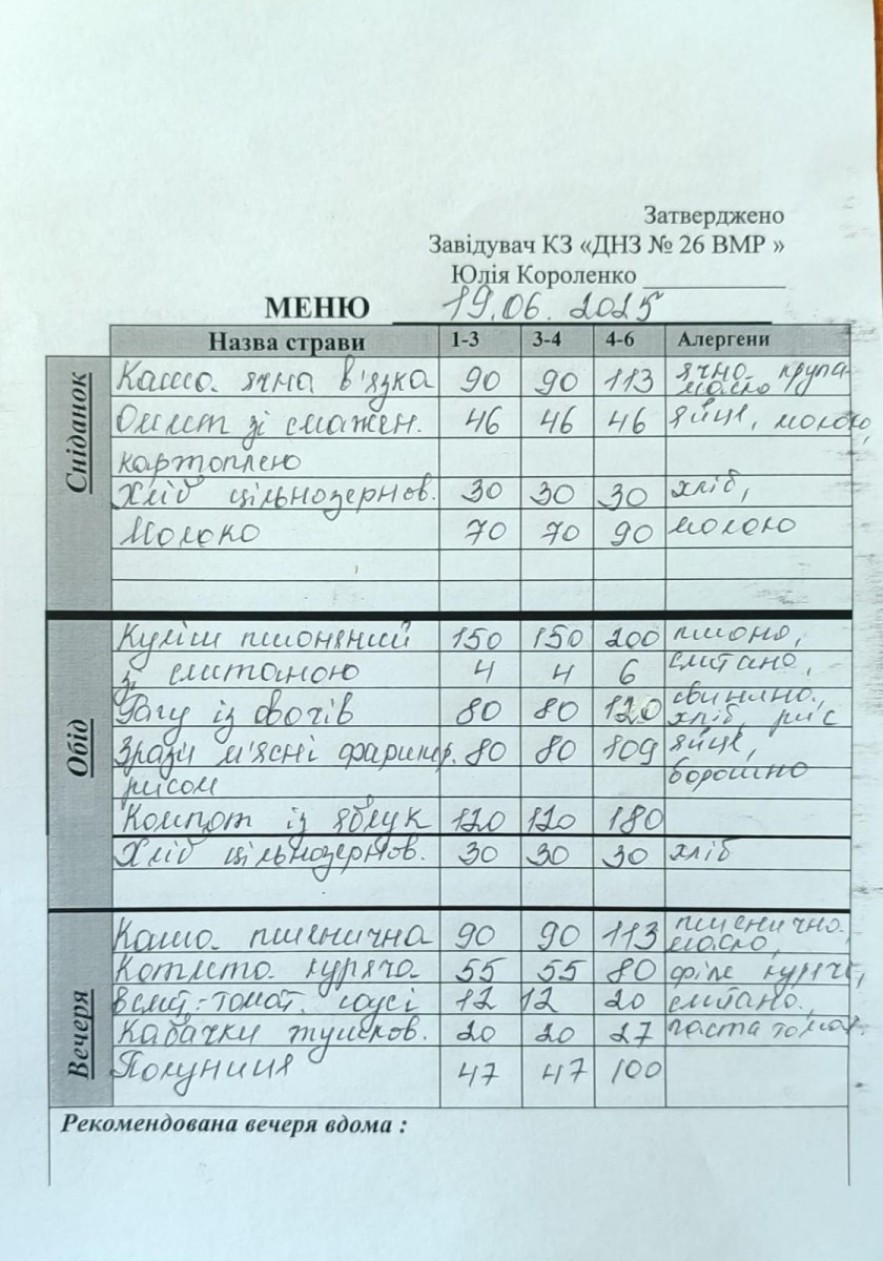 Затверджено
Завідувач КЗ «ДНЗ № 26 ВМР »
Юлія Короленко
МЕНЮ 19.06.2025
Назва страви 1-3 3-4 4-6 Алергени
Сніданок
Каша ячна в'язка 90 90 113 ячна крупа масло
Омлет зі смажен. 46 46 46 яйце, молоко,
картоплею
Хліб цільнозернов. 30 30 30 хліб,
Молоко 70 70 90 молоко
Обід
Куліш пшоняний 150 150 200 пшоно,
з сметаною 4 4 6 сметана,
Рагу із овочів 80 80 120 свинина, хліб, рис
Зрази м'ясні фаришр. 80 80 109 яйце,
рисом борошно
Компот із яблук 120 120 180
Хліб цільнозернов. 30 30 30 хліб
Вечеря
Каша пшенична 90 90 113 пшенична масло,
Котлета куряча 55 55 80 філе куряче,
в смет-томат. соусі 12 12 20 сметана,
Кабачки тушков. 20 20 27 паста томат.
Полуниця 47 47 100
Рекомендована вечеря вдома :